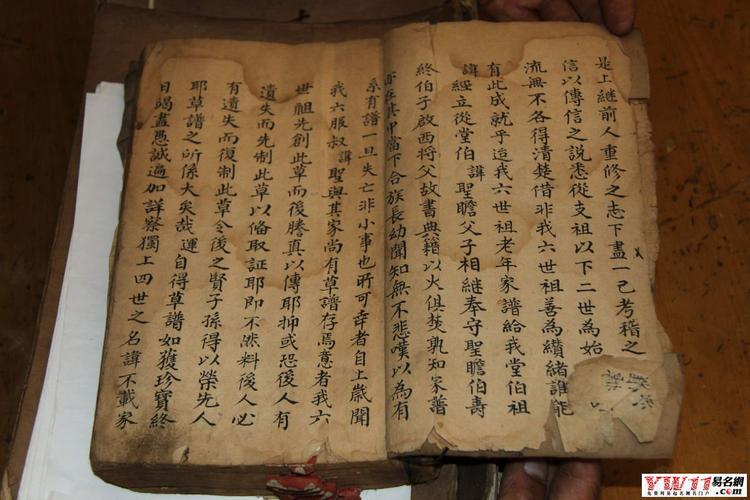 是上繼前人重修之志下盡一己考稽之
信以傳信之說悉從支祖以下二世為始
流無不各得清楚借非我六世祖善為纘緒誰能
有此成就乎迨我六世祖老年家譜給我堂伯祖
諱經立從堂伯諱聖瞻父子相繼奉守聖瞻伯壽
終伯子啟西將父故書典籍以火俱焚孰知家譜
亦在其中當下合族長幼聞知無不悲嘆以為有
系有譜一旦失亡非小事也所可幸者自上歲聞
我六服叔諱聖與其家尚有草譜存焉意者我六
世祖先創此草而後謄真以傳耶抑或恐後人有
遺失而先制此草以俻取証耶即不然料後人必
有遺失而復制此草令後之賢子孫得以榮先人
耶草譜之所係大矣哉運自得草譜如獲珍寶終
日竭盡愚誠遍加詳察獨上四世之名諱不載家
YW11易名網
.com